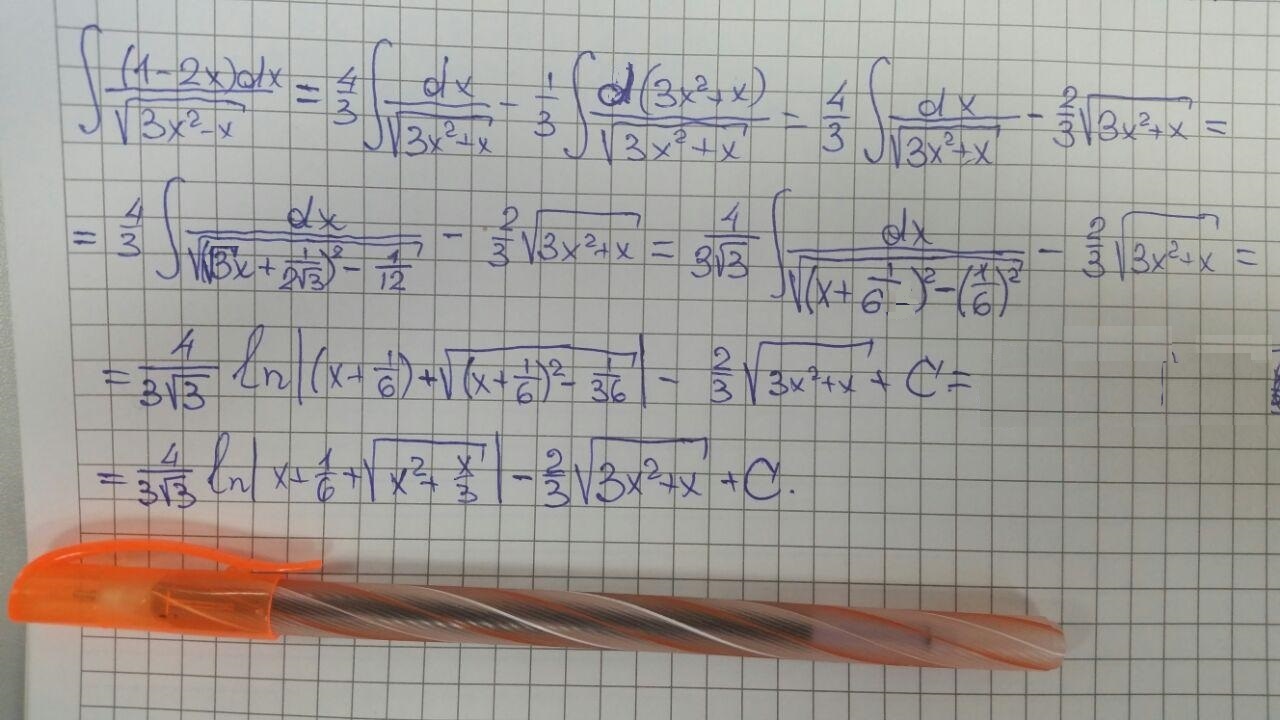 ∫ (1-2x)dx / √(3x²-x) = 4/3 ∫ dx / √(3x²+x) - 1/3 ∫ d(3x²+x) / √(3x²+x) = 4/3 ∫ dx / √(3x²+x) - 2/3 √(3x²+x) =
= 4/3 ∫ dx / √((√3x + 1/(2√3))² - 1/12) - 2/3 √(3x²+x) = 4/(3√3) ∫ dx / √((x + 1/6)² - (1/6)²) - 2/3 √(3x²+x) =
= 4/(3√3) ln|(x + 1/6) + √((x + 1/6)² - 1/36)| - 2/3 √(3x²+x) + C =
= 4/(3√3) ln|x + 1/6 + √(x² + x/3)| - 2/3 √(3x²+x) + C.